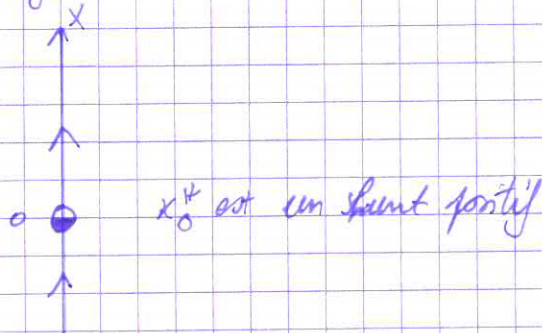 x
0 x₀* est un shunt positif